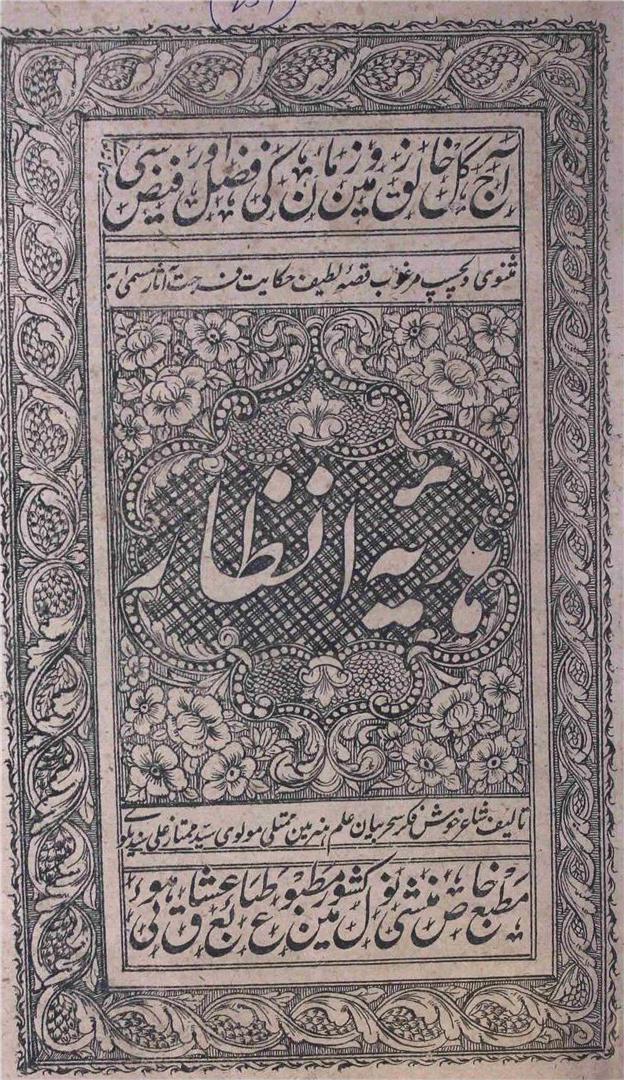 آج کل خالق زمین و زمان کی فضل اور فیض سی
مثنوی دلچسپ مرغوب قصۂ لطیف حکایت فرحت آثار مسمی بہ
ہدیۂ انظار
تالیف شاعر خوش فکر سحر بیان علم ہنر مین ممتلی مولوی سید ممتاز علی سندیلوی
مطبع خاص منشی نولکشور مین مطبوع طبائع عشاق ہوئی